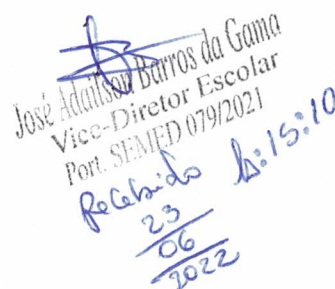 José Adailson Barros da Gama
Vice-Diretor Escolar
Port. SEMED 079/2021
Recebido h:15:10
23
06
2022